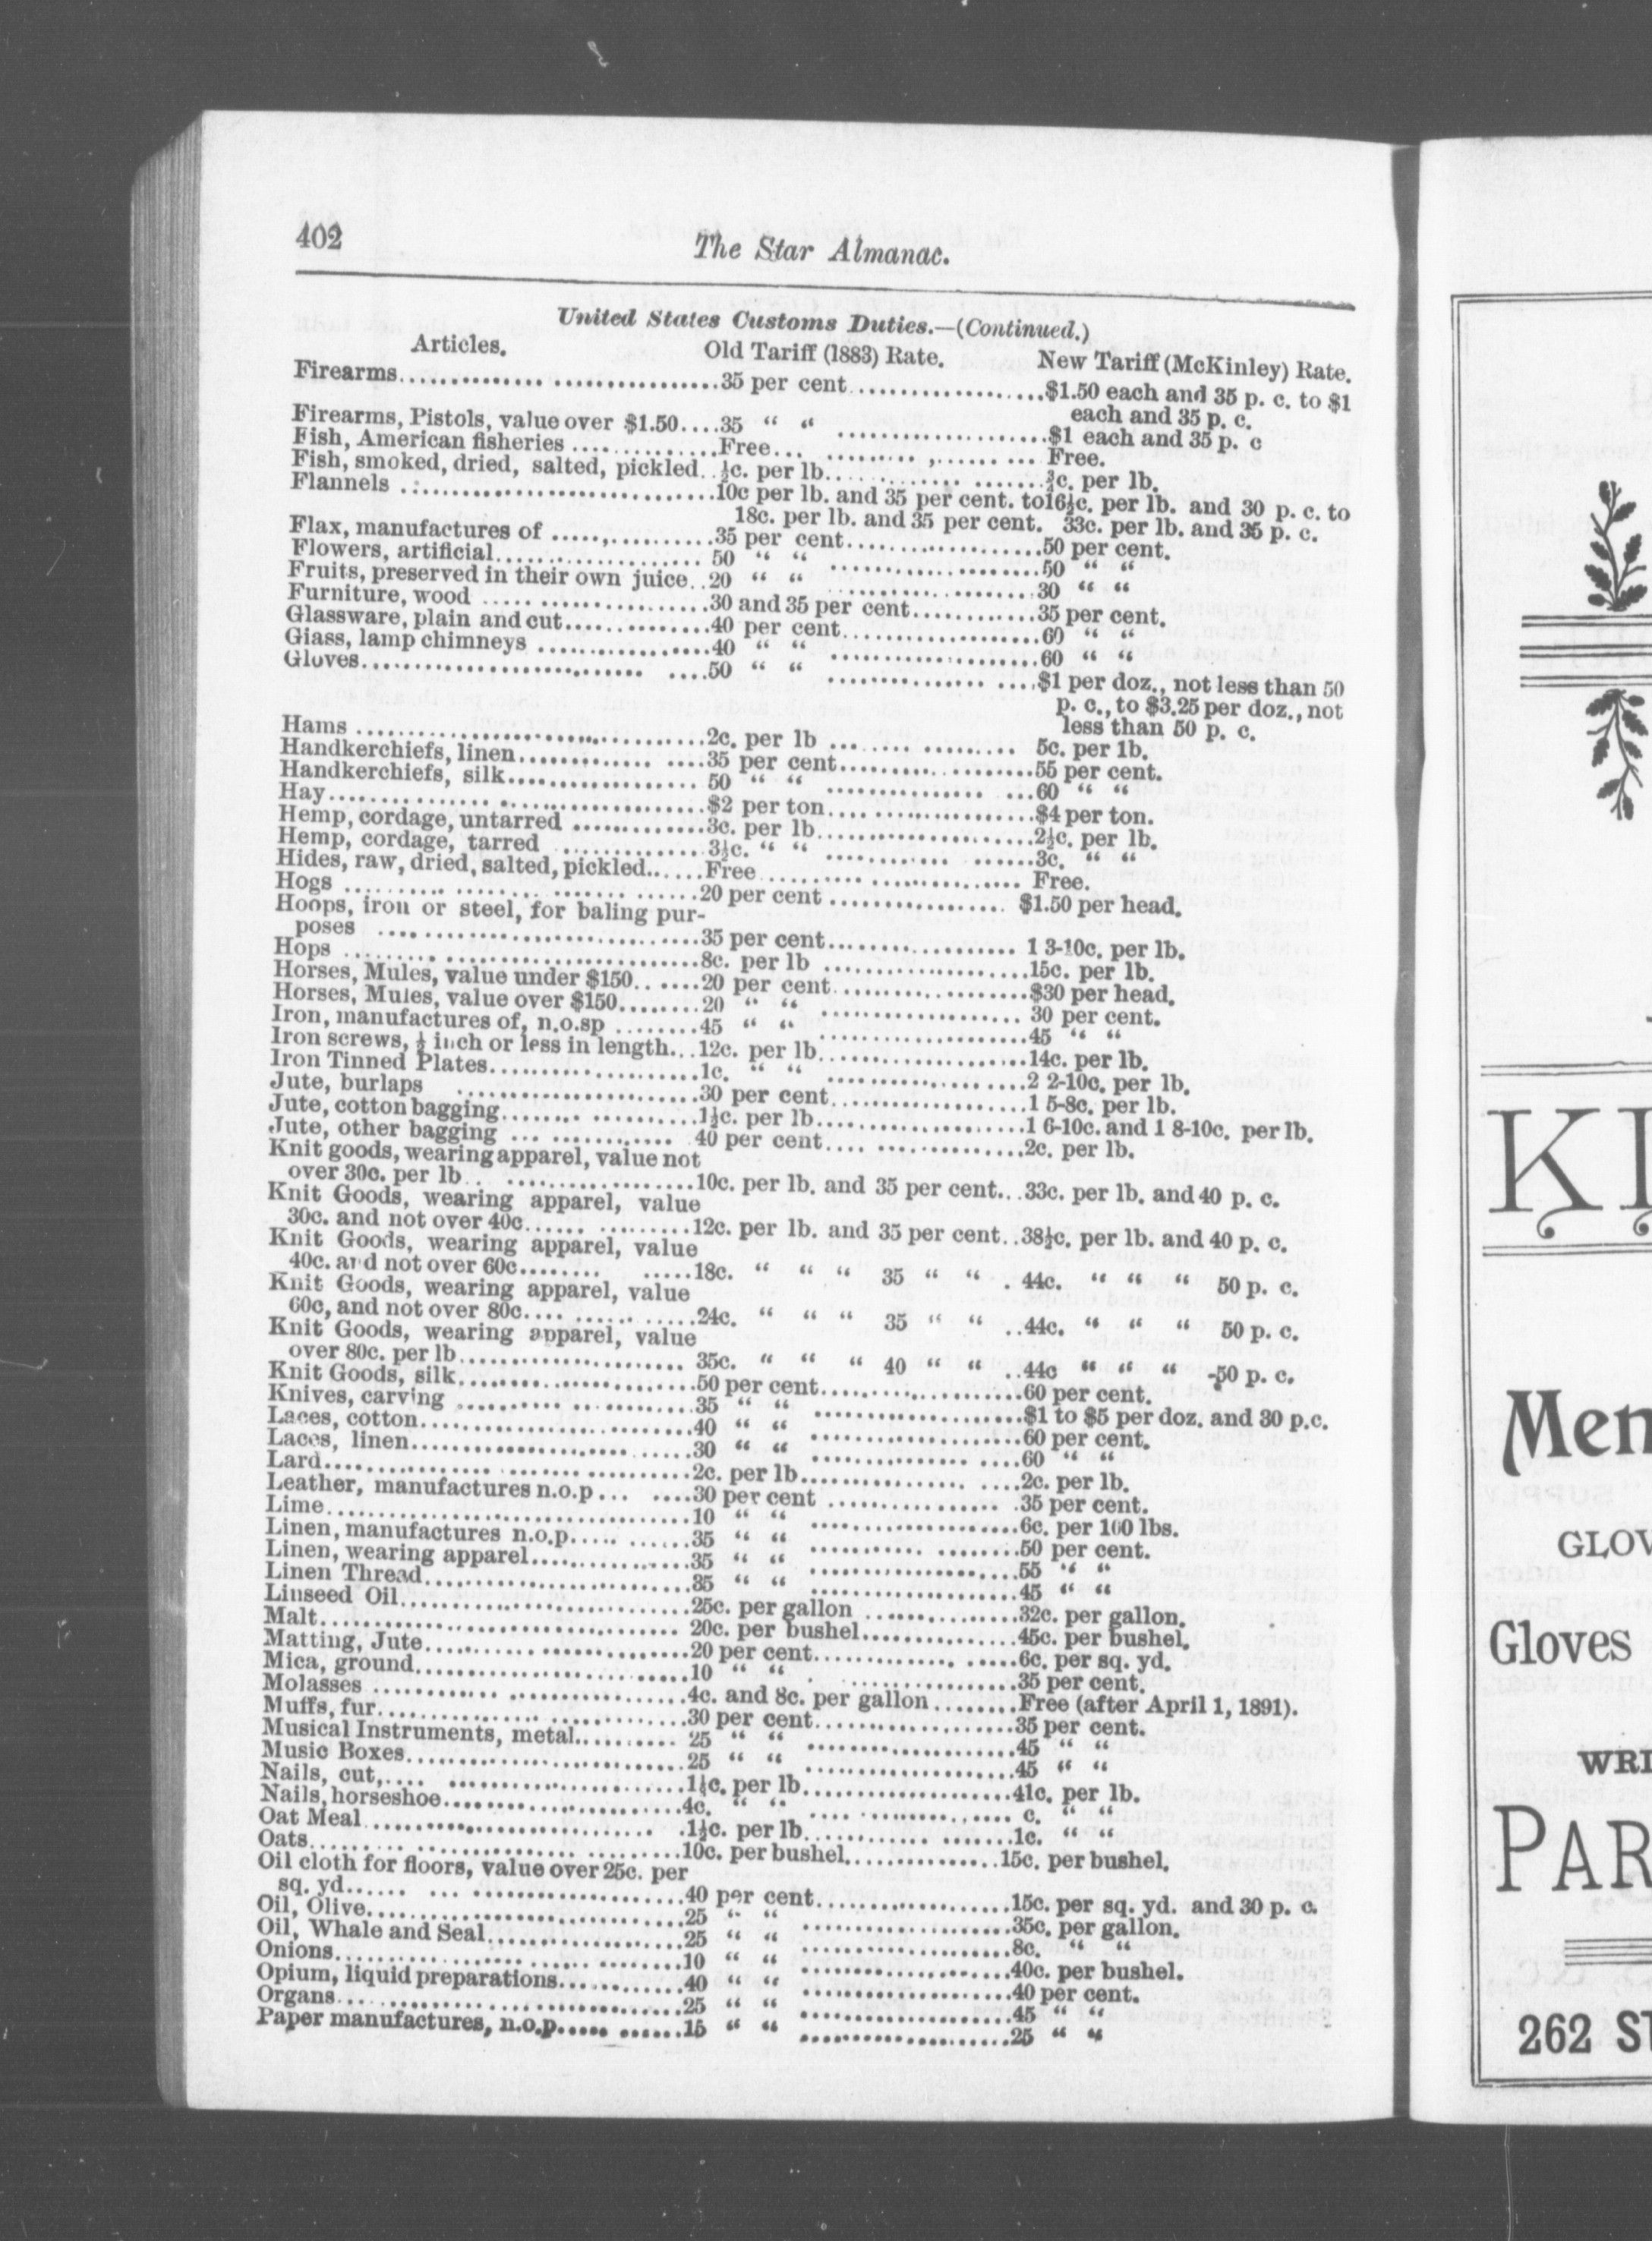 402
The Star Almanac.
United States Customs Duties.—(Continued.)
Articles. Old Tariff (1883) Rate. New Tariff (McKinley) Rate.
Firearms.................................35 per cent.....................$1.50 each and 35 p. c. to $1
each and 35 p. c.
Firearms, Pistols, value over $1.50....35 “ “ .....................$1 each and 35 p. c
Fish, American fisheries ...............Free... ......... ,....... ... Free.
Fish, smoked, dried, salted, pickled..½c. per lb.......................¾c. per lb.
Flannels ................................10c per lb. and 35 per cent. to16½c. per lb. and 30 p. c. to
18c. per lb. and 35 per cent. 33c. per lb. and 35 p. c.
Flax, manufactures of .....,..........35 per cent.....................50 per cent.
Flowers, artificial..................... 50 “ “ .....................50 “ “
Fruits, preserved in their own juice..20 “ “ .....................30 “ “
Furniture, wood .......................30 and 35 per cent............35 per cent.
Glassware, plain and cut...............40 per cent....................60 “ “
Giass, lamp chimneys .................40 “ “ .....................60 “ “
Gloves............................ ....50 “ “ ............... ....$1 per doz., not less than 50
p. c., to $3.25 per doz., not
less than 50 p. c.
Hams ...................................2c. per lb ........ ......... 5c. per lb.
Handkerchiefs, linen............. ....35 per cent....................55 per cent.
Handkerchiefs, silk................... 50 “ “ ................ ...60 “ “
Hay......................................$2 per ton.....................$4 per ton.
Hemp, cordage, untarred .............3c. per lb......................2½c. per lb.
Hemp, cordage, tarred ...............3½c. “ “ ............ ......3c. “ “
Hides, raw, dried, salted, pickled......Free .......................... Free.
Hogs ...................................20 per cent ................. $1.50 per head.
Hoops, iron or steel, for baling pur-
poses .................................35 per cent................... 1 3-10c. per lb.
Hops ...................................8c. per lb .....................15c. per lb.
Horses, Mules, value under $150.......20 per cent....................$30 per head.
Horses, Mules, value over $150........20 “ “ .................... 30 per cent.
Iron, manufactures of, n.o.sp ........45 “ “ .....................45 “ “
Iron screws, ½ inch or less in length...12c. per lb.....................14c. per lb.
Iron Tinned Plates.....................1c. “ “ ....................2 2-10c. per lb.
Jute, burlaps ........................30 per cent...................1 5-8c. per lb.
Jute, cotton bagging...................1½c. per lb.....................1 6-10c. and 1 8-10c. per lb.
Jute, other bagging ... ............ 40 per cent....................2c. per lb.
Knit goods, wearing apparel, value not
over 30c. per lb.. ...................10c. per lb. and 35 per cent...33c. per lb. and 40 p. c.
Knit Goods, wearing apparel, value
30c. and not over 40c...... .........12c. per lb. and 35 per cent..38½c. per lb. and 40 p. c.
Knit Goods, wearing apparel, value
40c. and not over 60c........ .....18c. “ “ “ 35 “ “ . 44c. “ “ “ 50 p. c.
Knit Goods, wearing apparel, value
60c, and not over 80c.... ............24c. “ “ “ 35 “ “ ..44c. “ “ “ 50 p. c.
Knit Goods, wearing apparel, value
over 80c. per lb....................... 35c. “ “ “ 40 “ “ ..44c “ “ “ 50 p. c.
Knit Goods, silk........................50 per cent....................60 per cent.
Knives, carving .......................35 “ “ .....................$1 to $5 per doz. and 30 p.c.
Laces, cotton...........................40 “ “ .....................60 per cent.
Laces, linen...................... ......30 “ “ ................ ....60 “ “
Lard.....................................2c. per lb................ ....2c. per lb.
Leather, manufactures n.o.p... ....30 per cent ................. .35 per cent.
Lime.....................................10 “ “ .....................6c. per 100 lbs.
Linen, manufactures n.o.p..... ......35 “ “ ........... ........50 per cent.
Linen, wearing apparel................35 “ “ .....................55 “ “
Linen Thread...........................35 “ “ .....................45 “ “
Linseed Oil.............................25c. per gallon ...............32c. per gallon.
Malt..................................... 20c. per bushel................45c. per bushel.
Matting, Jute...........................20 per cent............. .....6c. per sq. yd.
Mica, ground............................10 “ “ . ...................35 per cent.
Molasses ................................4c. and 8c. per gallon ........Free (after April 1, 1891).
Muffs, fur...............................30 per cent....................35 per cent.
Musical Instruments, metal........... 25 “ “ .....................45 “ “
Music Boxes............................25 “ “ .....................45 “ “
Nails, cut,.... ........................1¼c. per lb.....................41c. per lb.
Nails, horseshoe........................4c. “ “ .... ................ c. “ “
Oat Meal............................. .1½c. per lb............ .......1c. “ “
Oats.....................................10c. per bushel................15c. per bushel.
Oil cloth for floors, value over 25c. per
sq. yd...... ... .....................40 per cent....................15c. per sq. yd. and 30 p. c.
Oil, Olive................................25 “ “ .....................35c. per gallon.
Oil, Whale and Seal....................25 “ “ .....................8c. “ “
Onions......................... ........10 “ “ .....................40c. per bushel.
Opium, liquid preparations............40 “ “ .....................40 per cent.
Organs...................................25 “ “ .....................45 “ “
Paper manufactures, n.o.p..... .......15 “ “ .....................25 “ “
Men
GLOV
Gloves
WRI
PAR
262 ST